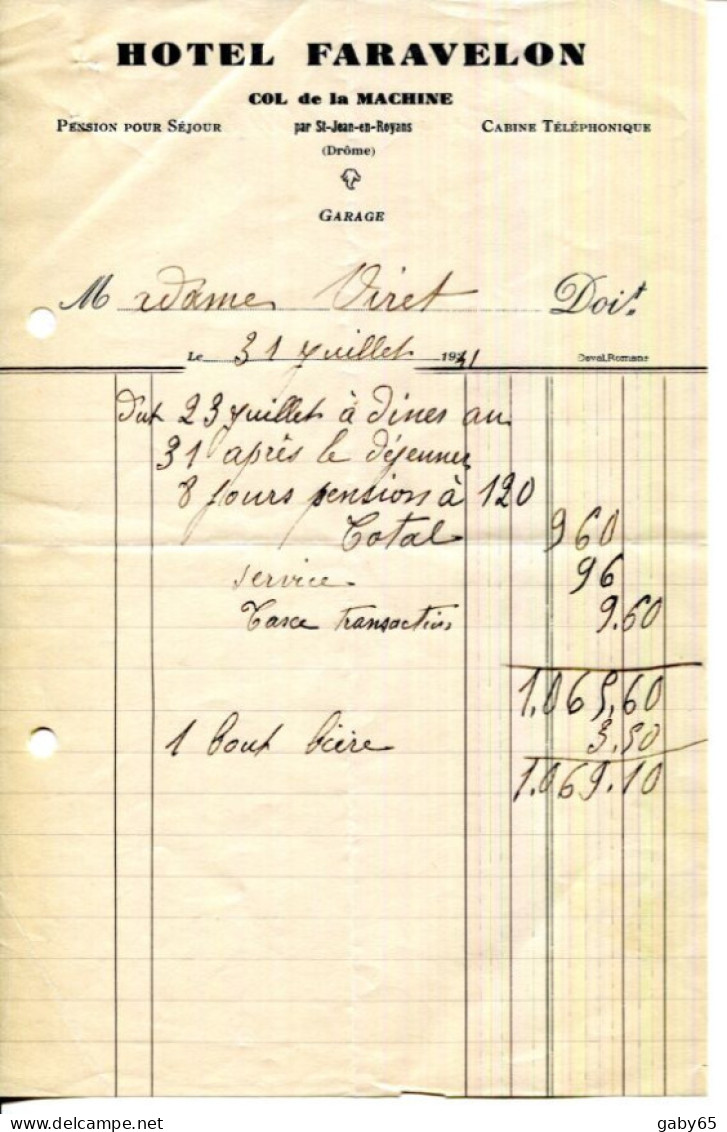 HOTEL FARAVELON
COL de la MACHINE
PENSION POUR SÉJOUR par St-Jean-en-Royans CABINE TÉLÉPHONIQUE
(Drôme)
GARAGE
Madame Viret Doit
Le 31 Juillet 1941
Deval.Romans
Dut 23 Juillet à diner au
31 après le déjeuner
8 jours pension à 120
Total 960
service 96
Taxe transaction 9.60
1.065,60
1 bout bière 3.50
1.069.10
delcampe.net
gaby65